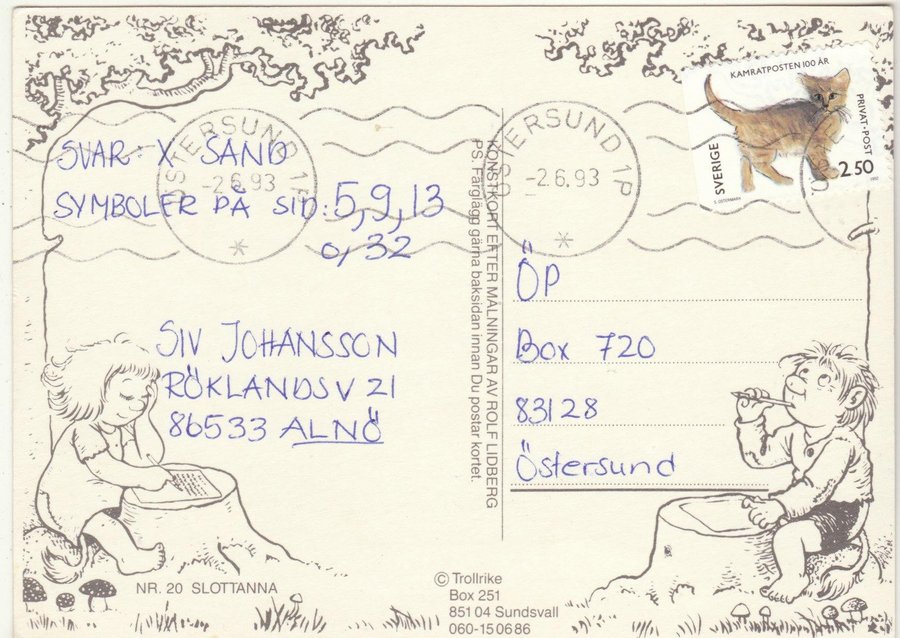 SVAR: X SAND
SYMBOLER PÅ SID: 5, 9, 13
o, 32
SIV JOHANSSON
RÖKLANDSV 21
86533 ALNÖ
NR. 20 SLOTTANNA
ÖSTERSUND 1P
-2.6.93
KONSTKORT EFTER MÅLNINGAR AV ROLF LIDBERG
PS. Färglägg gärna baksidan innan Du postar kortet.
© Trollrike
Box 251
851 04 Sundsvall
060-15 06 86
ÖSTERSUND 1P
-2.6.93
KAMRATPOSTEN 100 ÅR
PRIVAT-POST
SVERIGE
2.50
ÖP
Box 720
83128
Östersund